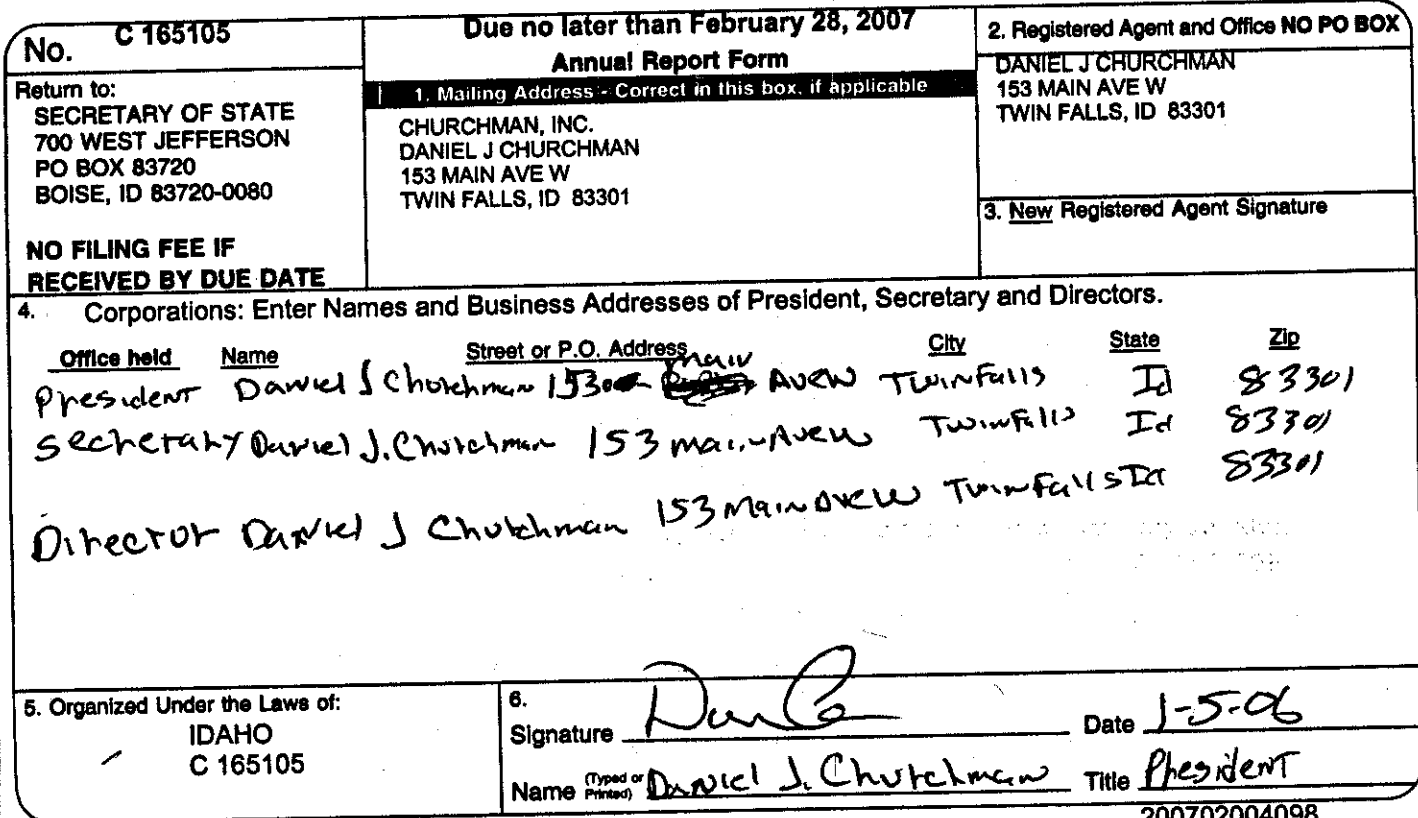 No. C 165105
Return to:
SECRETARY OF STATE
700 WEST JEFFERSON
PO BOX 83720
BOISE, ID 83720-0080
NO FILING FEE IF
RECEIVED BY DUE DATE
Due no later than February 28, 2007
Annual Report Form
1. Mailing Address - Correct in this box, if applicable
CHURCHMAN, INC.
DANIEL J CHURCHMAN
153 MAIN AVE W
TWIN FALLS, ID 83301
2. Registered Agent and Office NO PO BOX
DANIEL J CHURCHMAN
153 MAIN AVE W
TWIN FALLS, ID 83301
3. New Registered Agent Signature
4. Corporations: Enter Names and Business Addresses of President, Secretary and Directors.
Office held Name Street or P.O. Address City State Zip
President Daniel J Churchman 153 Main Ave W Twin Falls Id 83301
Secretary Daniel J. Churchman 153 Main Ave W Twin Falls Id 83301
Director Daniel J Churchman 153 Main Ave W Twin Falls Id 83301
5. Organized Under the Laws of:
IDAHO
C 165105
6.
Signature Dan C Date 1-5-06
Name (Typed or Printed) Daniel J. Churchman Title President
200702004098